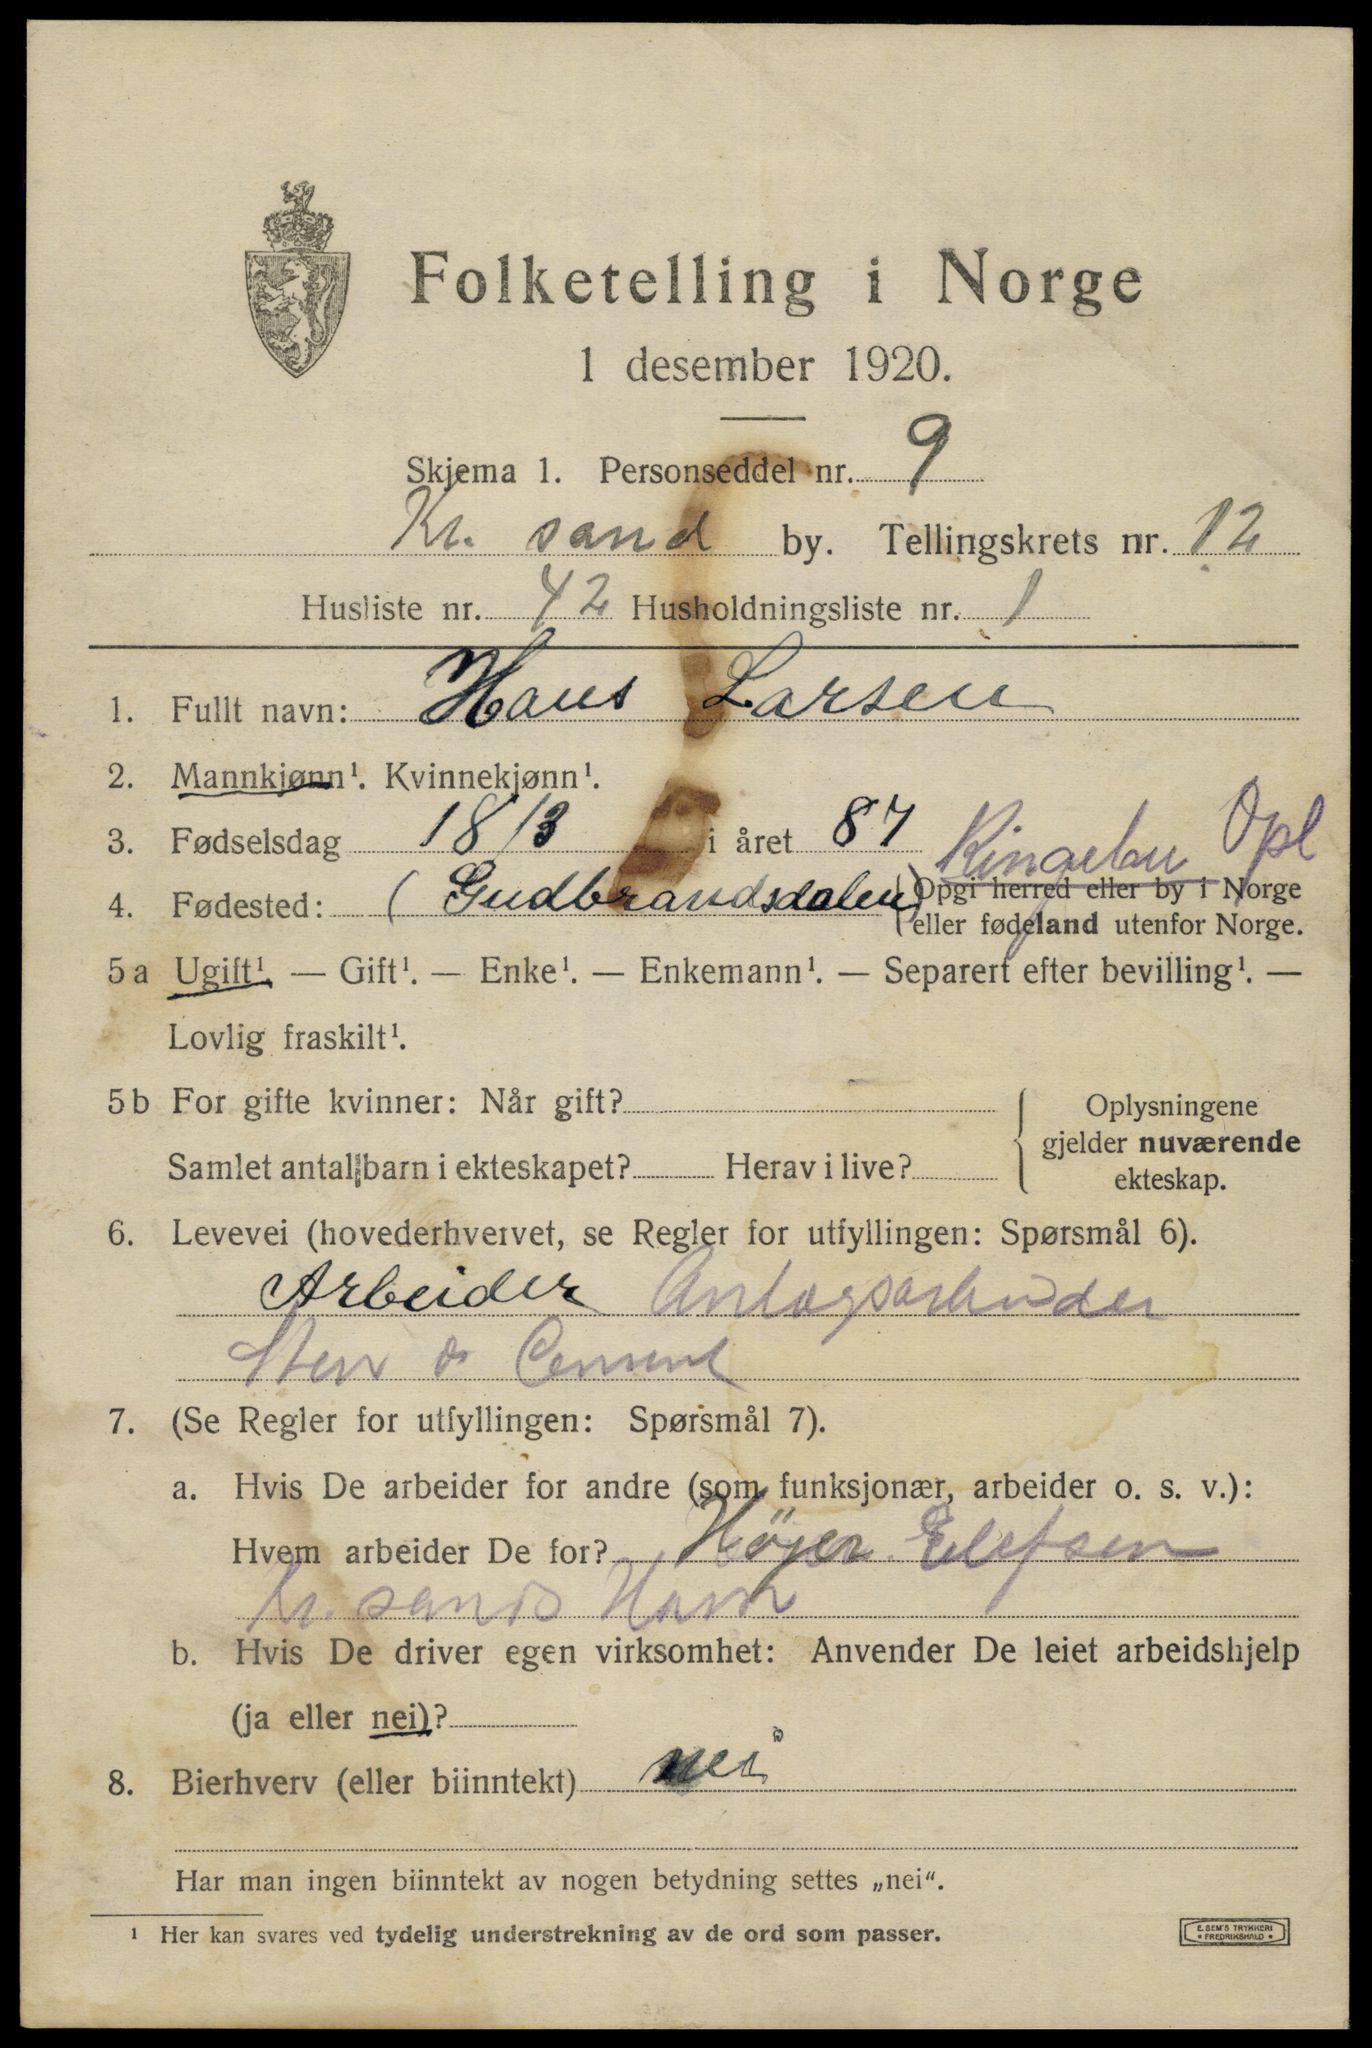 Folketelling i Norge
1 desember 1920.
Skjema 1. Personseddel nr. 9
Kr. sand by. Tellingskrets nr. 12
Husliste nr. 42 Husholdningsliste nr. 1
1. Fullt navn: Hans Larsen
2. Mannkjønn¹. Kvinnekjønn¹.
3. Fødselsdag 18/3 i året 87 Ringebu Opl
4. Fødested: (Gudbrandsdalen) (Opgi herred eller by i Norge
eller fødeland utenfor Norge.
5a Ugift¹. — Gift¹. — Enke¹. — Enkemann¹. — Separert efter bevilling¹. —
Lovlig fraskilt¹.
5b For gifte kvinner: Når gift?
Samlet antal barn i ekteskapet? Herav i live?
Oplysningene
gjelder nuværende
ekteskap.
6. Levevei (hovederhvervet, se Regler for utfyllingen: Spørsmål 6).
Arbeider Anlægsarbeider
Sten & Cement
7. (Se Regler for utfyllingen: Spørsmål 7).
a. Hvis De arbeider for andre (som funksjonær, arbeider o. s. v.):
Hvem arbeider De for? Höyer Elefsen
Kr. sands Havn
b. Hvis De driver egen virksomhet: Anvender De leiet arbeidshjelp
(ja eller nei)?
8. Bierhverv (eller biinntekt) nei
Har man ingen biinntekt av nogen betydning settes „nei“.
¹ Her kan svares ved tydelig understrekning av de ord som passer.
E. SEM'S TRYKKERI
• FREDRIKSHALD •